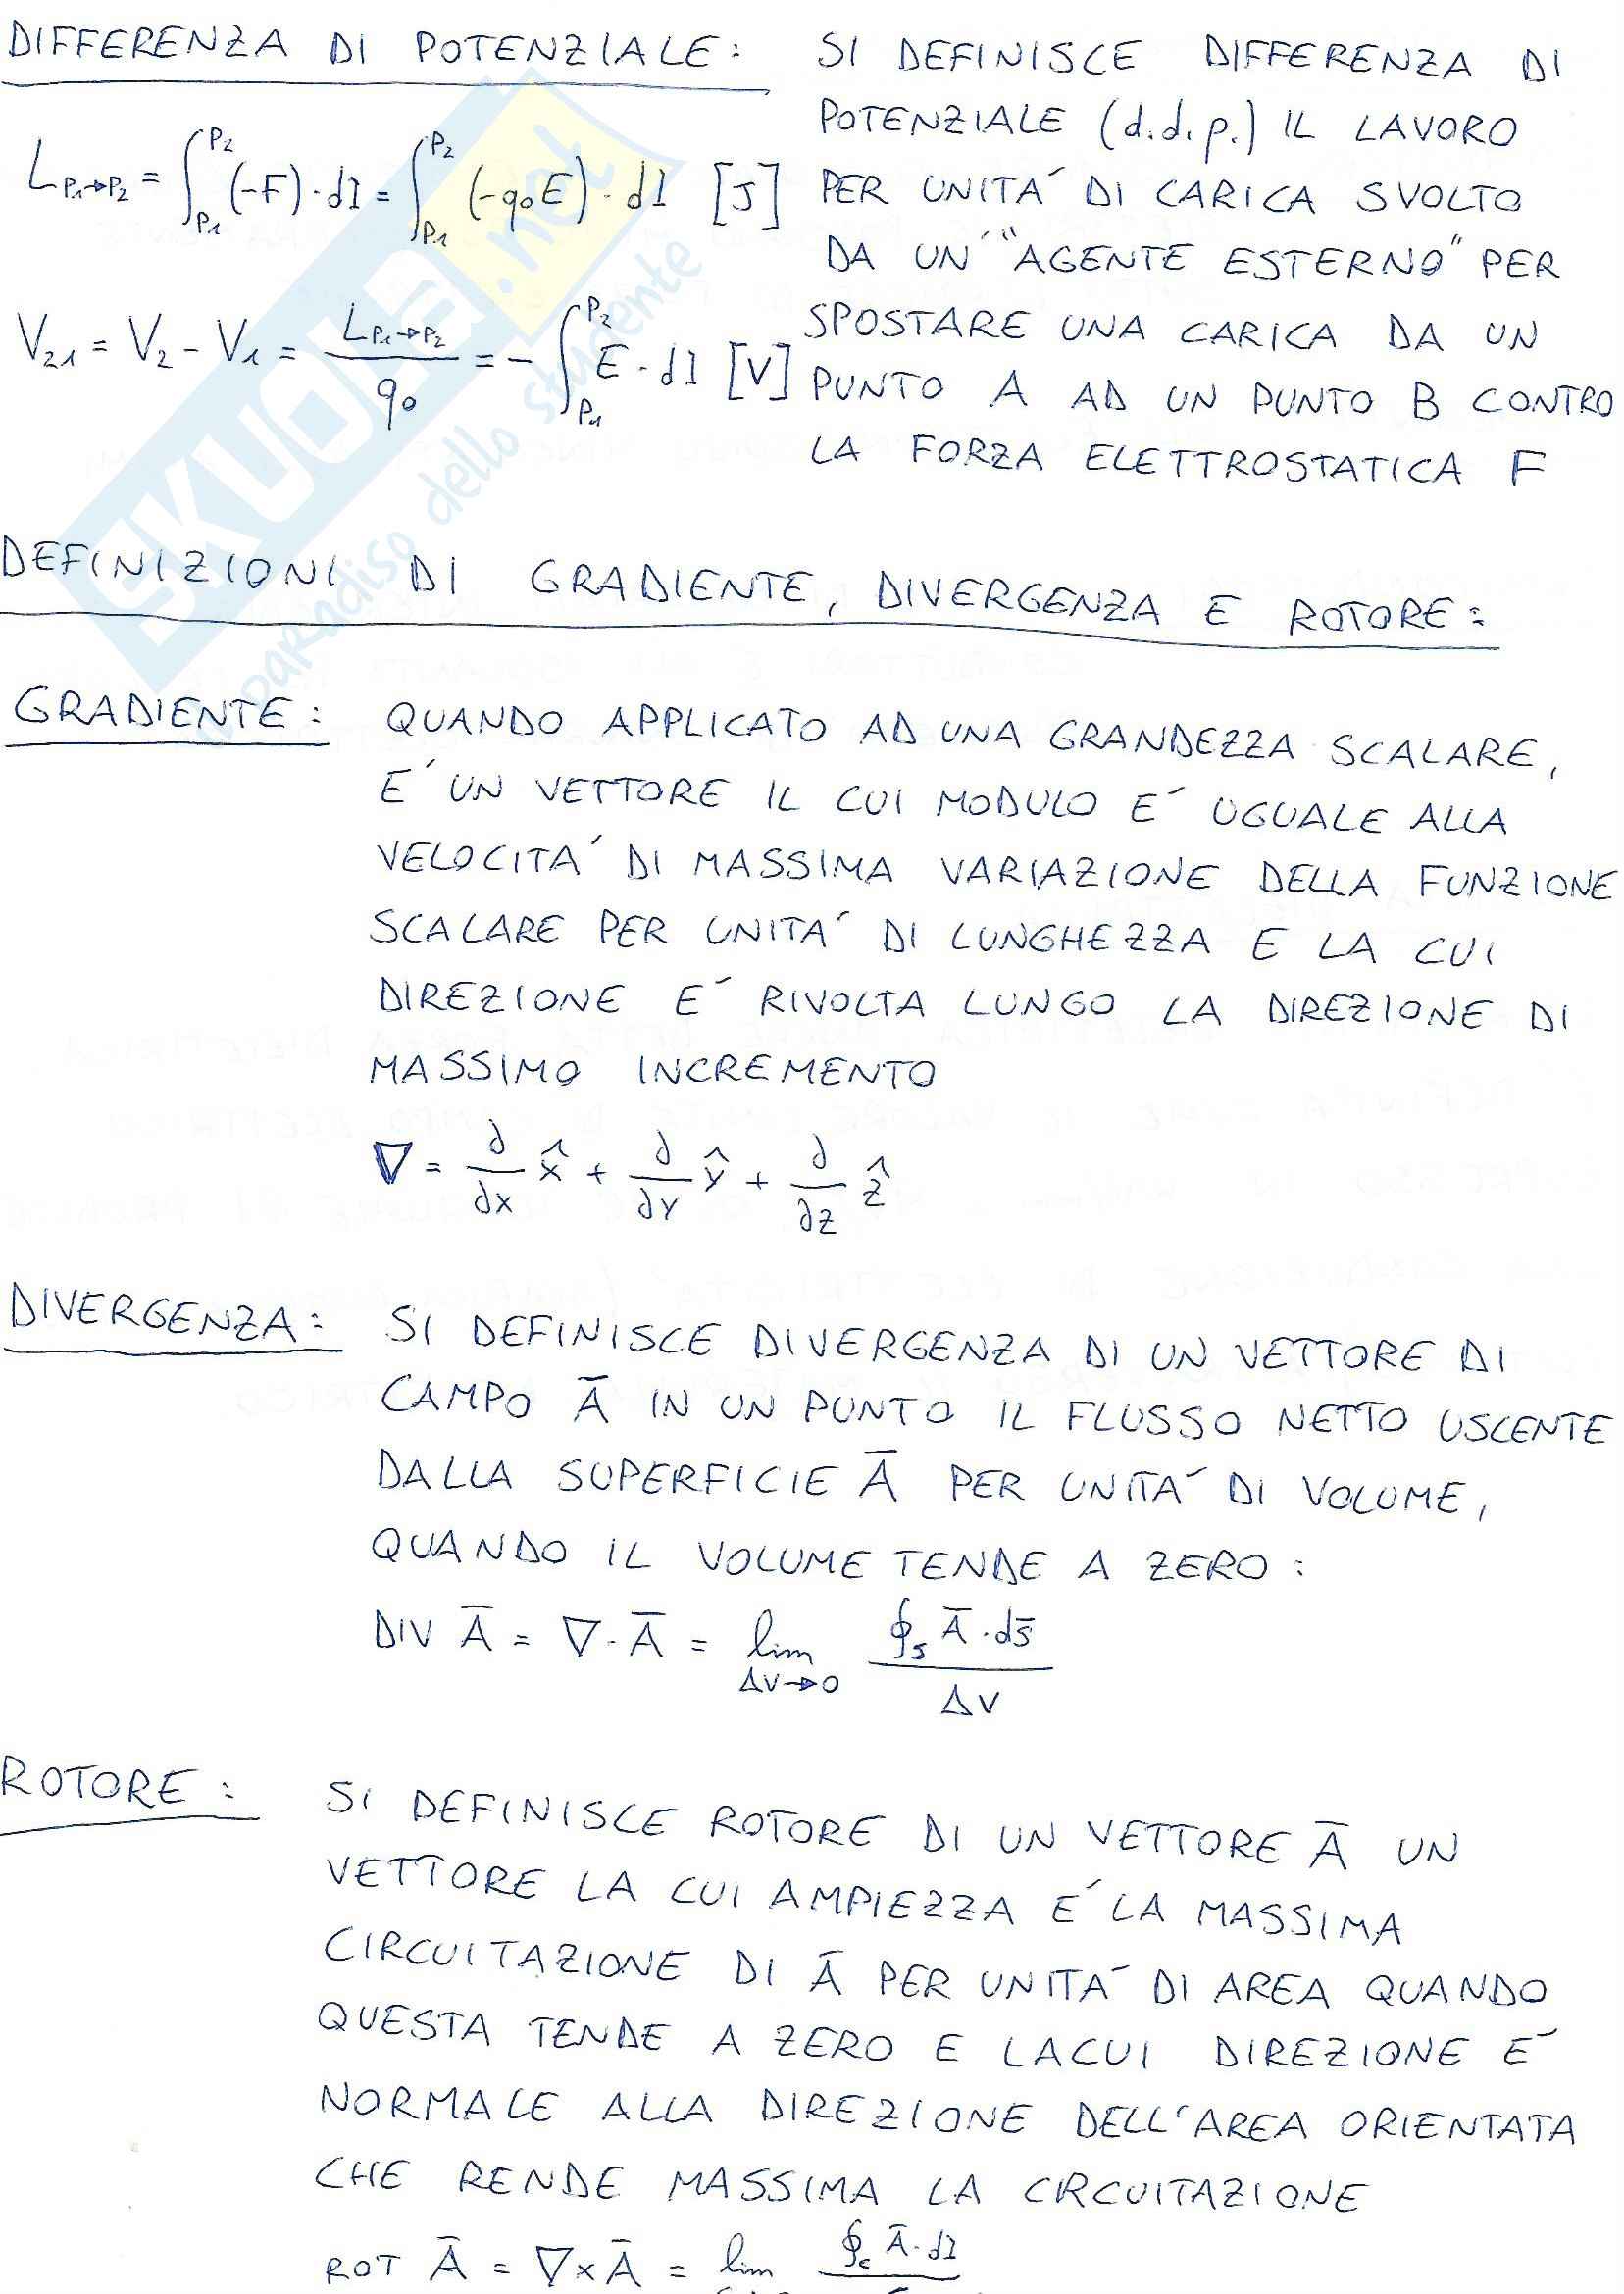 DIFFERENZA DI POTENZIALE: SI DEFINISCE DIFFERENZA DI
POTENZIALE (d.d.p.) IL LAVORO
L P1→P2 = ∫P1^P2 (-F)·dl = ∫P1^P2 (-q0E)·dl [J] PER UNITA' DI CARICA SVOLTO
DA UN' "AGENTE ESTERNO" PER
SPOSTARE UNA CARICA DA UN
V21 = V2 - V1 = L P1→P2 / q0 = - ∫P1^P2 E·dl [V] PUNTO A AD UN PUNTO B CONTRO
LA FORZA ELETTROSTATICA F
SKUOLA.net
il paradiso dello studente
DEFINIZIONI DI GRADIENTE, DIVERGENZA E ROTORE:
GRADIENTE: QUANDO APPLICATO AD UNA GRANDEZZA SCALARE,
E' UN VETTORE IL CUI MODULO E' UGUALE ALLA
VELOCITA' DI MASSIMA VARIAZIONE DELLA FUNZIONE
SCALARE PER UNITA' DI LUNGHEZZA E LA CUI
DIREZIONE E' RIVOLTA LUNGO LA DIREZIONE DI
MASSIMO INCREMENTO
∇ = ∂/∂x x̂ + ∂/∂y ŷ + ∂/∂z ẑ
DIVERGENZA: SI DEFINISCE DIVERGENZA DI UN VETTORE DI
CAMPO Ā IN UN PUNTO IL FLUSSO NETTO USCENTE
DALLA SUPERFICIE Ā PER UNITA' DI VOLUME,
QUANDO IL VOLUME TENDE A ZERO:
DIV Ā = ∇·Ā = lim ΔV→0 ∮s Ā·ds̄ / ΔV
ROTORE: SI DEFINISCE ROTORE DI UN VETTORE Ā UN
VETTORE LA CUI AMPIEZZA E' LA MASSIMA
CIRCUITAZIONE DI Ā PER UNITA' DI AREA QUANDO
QUESTA TENDE A ZERO E LACUI DIREZIONE E'
NORMALE ALLA DIREZIONE DELL'AREA ORIENTATA
CHE RENDE MASSIMA LA CIRCUITAZIONE
ROT Ā = ∇×Ā = lim ∮c Ā·dl